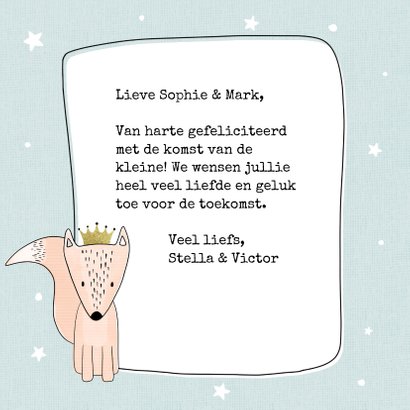 Lieve Sophie & Mark,
Van harte gefeliciteerd
met de komst van de
kleine! We wensen jullie
heel veel liefde en geluk
toe voor de toekomst.
Veel liefs,
Stella & Victor